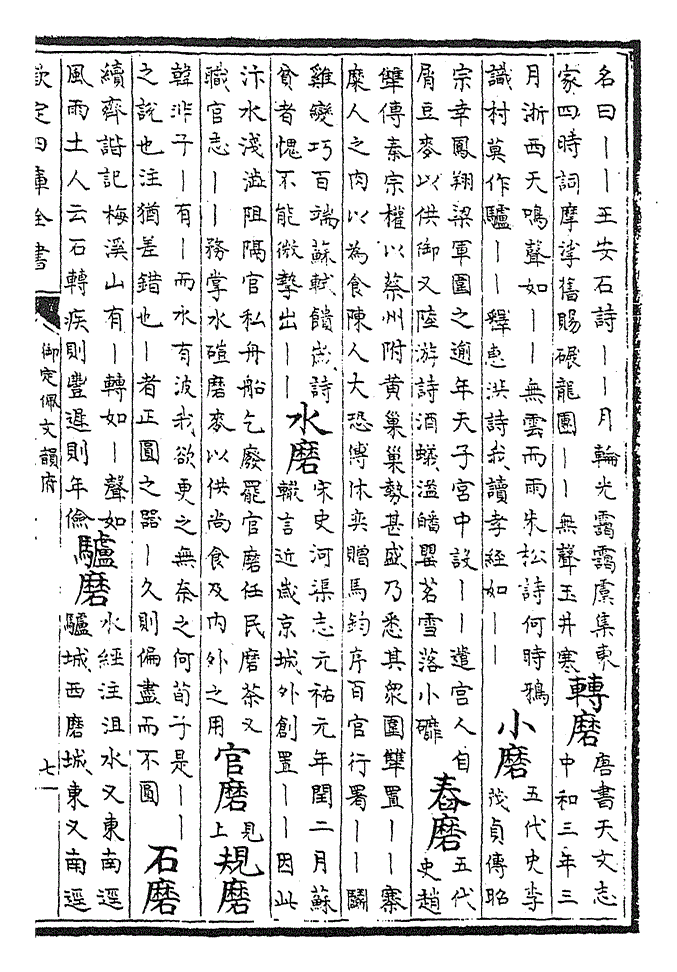 名曰丨丨王安石詩丨丨月輪光靄靄虞集東
家四時詞摩挲舊賜碾龍團丨丨無聲玉井寒
轉磨
唐書天文志
中和三年三
月浙西天鳴聲如丨丨無雲而雨朱松詩何時鴉
識村莫作驢丨丨釋惠洪詩我讀孝經如丨丨
小磨
五代史李
茂貞傳昭
宗幸鳳翔梁軍圍之逾年天子宮中設丨丨遣宮人自
屑豆麥以供御又陸游詩酒蟻溢皤罌茗雪落小䃺
舂磨
五代
史趙
犨傳秦宗權以蔡州附黃巢巢勢甚盛乃悉其衆圍犨置丨丨寨
糜人之肉以為食陳人大恐傅休奕贈馬鈞序百官行署丨丨鬭
雞變巧百端蘇軾饋歲詩
貧者愧不能微摯出丨丨
水磨
宋史河渠志元祐元年閏二月蘇
轍言近歲京城外創置丨丨因此
汴水淺澁阻隔官私舟船乞廢罷官磨任民磨茶又
職官志丨丨務掌水磑磨麥以供尚食及内外之用
官磨
見
上
規磨
韓非子丨有丨而水有波我欲更之無奈之何荀子是丨丨
之說也注猶差錯也丨者正圓之器丨久則偏盡而不圓
石磨
續齊諧記梅溪山有丨轉如丨聲如
風雨土人云石轉疾則豐遲則年儉
驢磨
水經注沮水又東南逕
驢城西磨城東又南逕
欽定四庫全書
御定佩文韻府
七